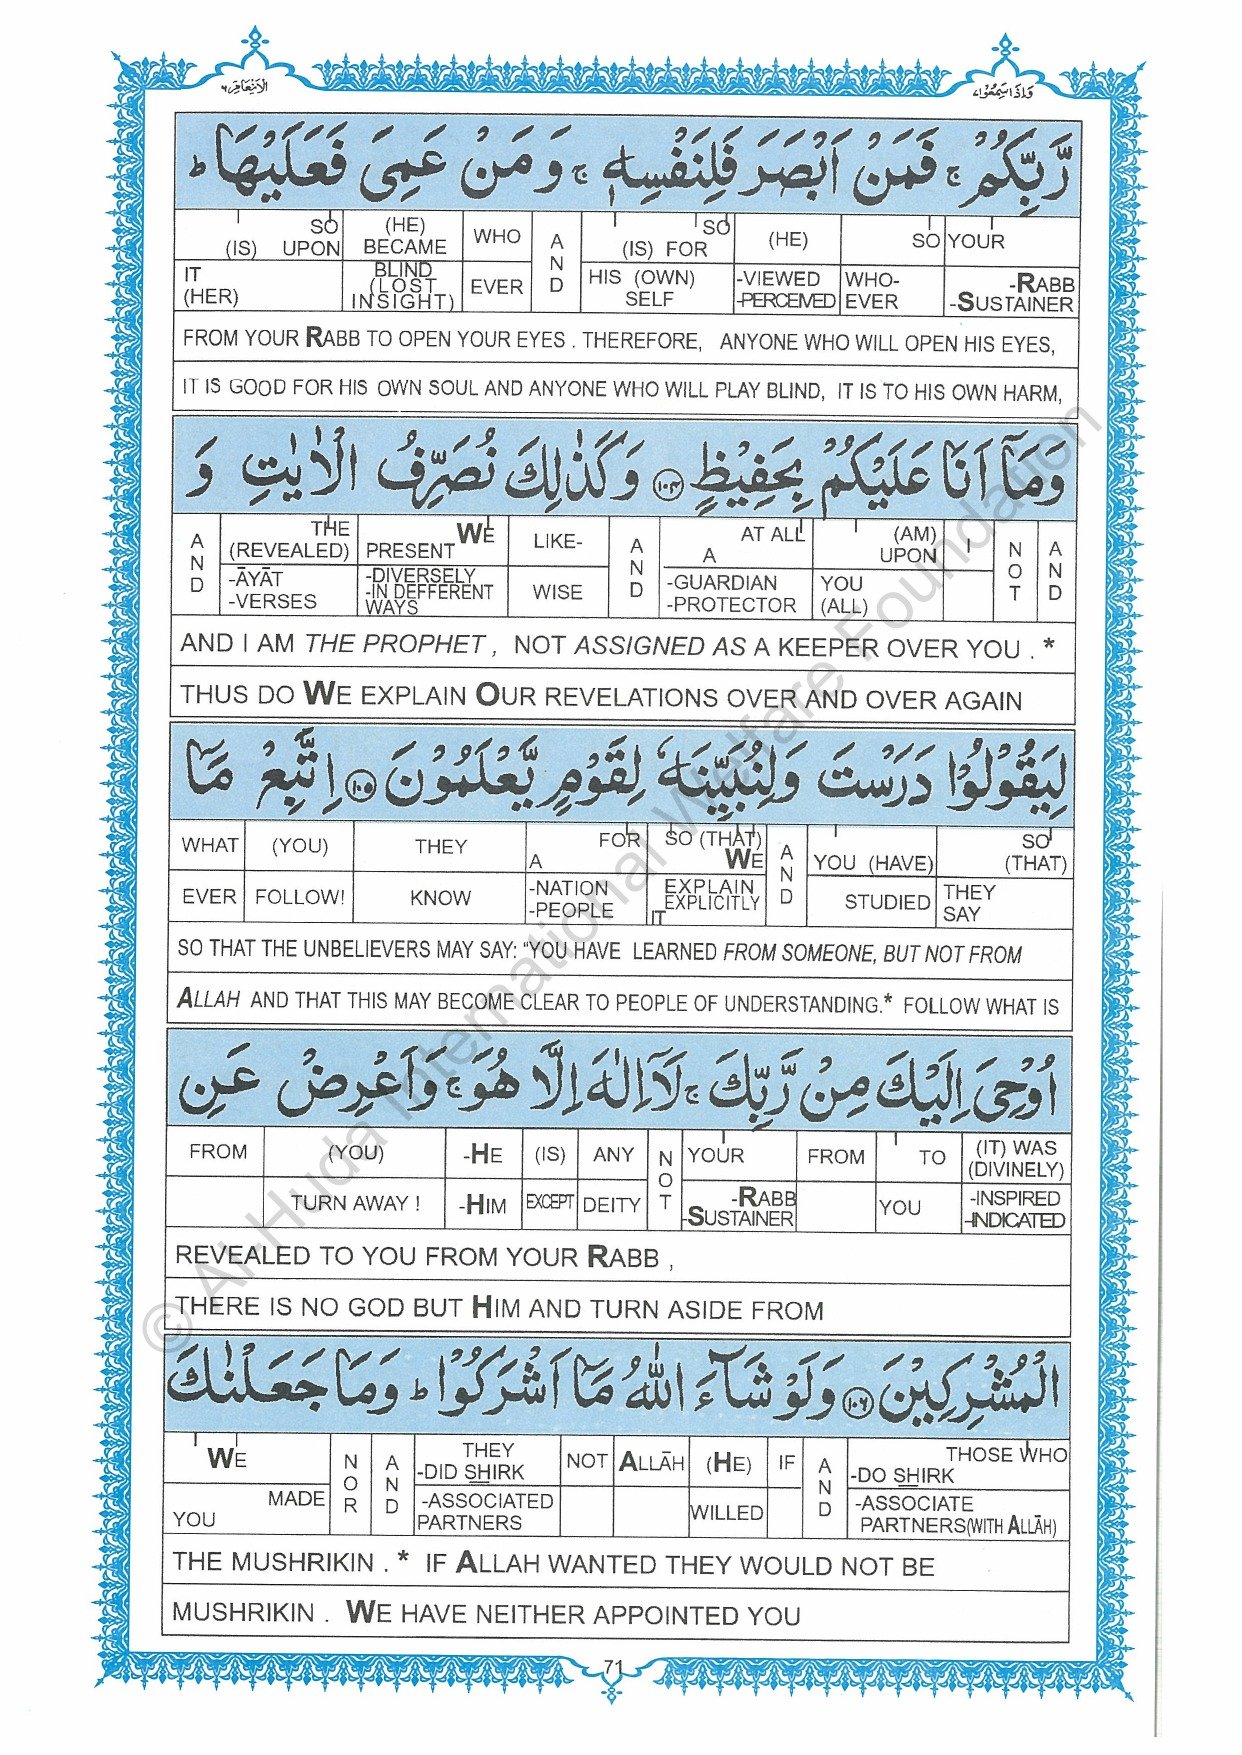 وَاِذَا سَمِعُوْا ٧
الْاَنْعَام ٦
رَّبِّكُمْ ۚ فَمَنْ اَبْصَرَ فَلِنَفْسِهٖ ۚ وَمَنْ عَمِىَ فَعَلَيْهَا ؕ
SO (IS) UPON | (HE) BECAME | WHO | AND | SO (IS) FOR | (HE) | SO | YOUR
IT (HER) | BLIND (LOST INSIGHT) | EVER | HIS (OWN) SELF | -VIEWED -PERCEIVED | WHO-EVER | -RABB -SUSTAINER
FROM YOUR RABB TO OPEN YOUR EYES . THEREFORE, ANYONE WHO WILL OPEN HIS EYES,
IT IS GOOD FOR HIS OWN SOUL AND ANYONE WHO WILL PLAY BLIND, IT IS TO HIS OWN HARM,
وَمَآ اَنَا عَلَيْكُمْ بِحَفِيْظٍ ١٠٤ وَكَذٰلِكَ نُصَرِّفُ الْاٰيٰتِ وَ
AND | THE (REVEALED) | WE PRESENT | LIKE- | AND | AT ALL A | (AM) UPON | I | NOT | AND
-ĀYĀT -VERSES | -DIVERSELY -IN DEFFERENT WAYS | WISE | -GUARDIAN -PROTECTOR | YOU (ALL)
AND I AM THE PROPHET , NOT ASSIGNED AS A KEEPER OVER YOU . *
THUS DO WE EXPLAIN OUR REVELATIONS OVER AND OVER AGAIN
لِيَقُوْلُوْا دَرَسْتَ وَلِنُبَيِّنَهٗ لِقَوْمٍ يَّعْلَمُوْنَ ١٠٥ اِتَّبِعْ مَآ
WHAT | (YOU) | THEY | FOR A | SO (THAT) WE | AND | YOU (HAVE) | SO (THAT)
EVER | FOLLOW! | KNOW | -NATION -PEOPLE | EXPLAIN EXPLICITLY IT | STUDIED | THEY SAY
SO THAT THE UNBELIEVERS MAY SAY: “YOU HAVE LEARNED FROM SOMEONE, BUT NOT FROM
ALLAH AND THAT THIS MAY BECOME CLEAR TO PEOPLE OF UNDERSTANDING.* FOLLOW WHAT IS
اُوْحِىَ اِلَيْكَ مِنْ رَّبِّكَ ۚ لَآ اِلٰهَ اِلَّا هُوَ ۚ وَاَعْرِضْ عَنِ
FROM | (YOU) | -HE | (IS) | ANY | NOT | YOUR | FROM | TO | (IT) WAS (DIVINELY)
TURN AWAY ! | -HIM | EXCEPT | DEITY | -RABB -SUSTAINER | YOU | -INSPIRED -INDICATED
REVEALED TO YOU FROM YOUR RABB ,
THERE IS NO GOD BUT HIM AND TURN ASIDE FROM
الْمُشْرِكِيْنَ ١٠٦ وَلَوْ شَآءَ اللّٰهُ مَآ اَشْرَكُوْا ؕ وَمَا جَعَلْنٰكَ
WE | NOR | AND | THEY -DID SHIRK | NOT | ALLĀH | (HE) | IF | AND | THOSE WHO -DO SHIRK
MADE YOU | -ASSOCIATED PARTNERS | WILLED | -ASSOCIATE PARTNERS(WITH ALLĀH)
THE MUSHRIKIN . * IF ALLAH WANTED THEY WOULD NOT BE
MUSHRIKIN . WE HAVE NEITHER APPOINTED YOU
71
© Al-Huda International Welfare Foundation